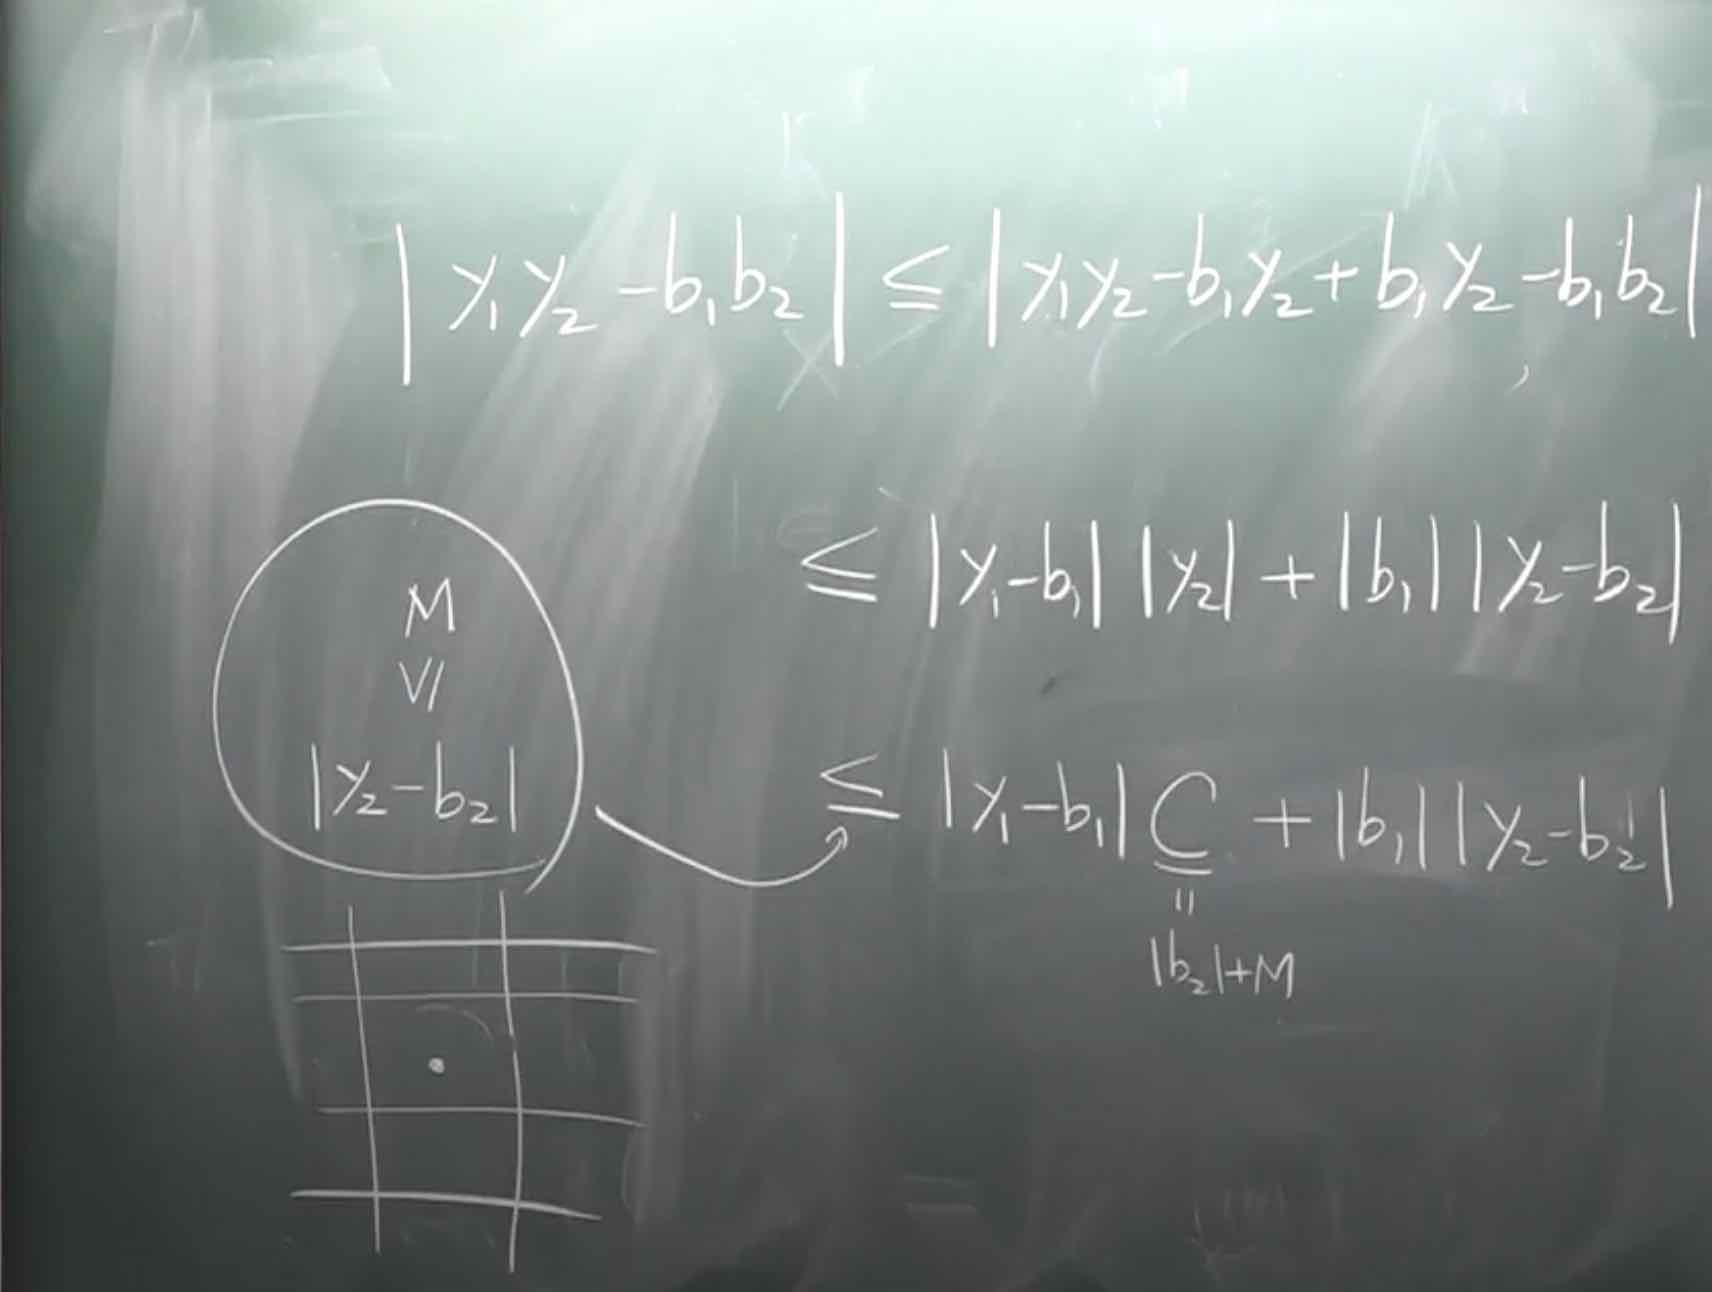 |y₁y₂ - b₁b₂| ≦ |y₁y₂ - b₁y₂ + b₁y₂ - b₁b₂|
≦ |y₁ - b₁| |y₂| + |b₁| |y₂ - b₂|
M
VI
|y₂ - b₂|
≦ |y₁ - b₁| C + |b₁| |y₂ - b₂|
||
|b₂| + M